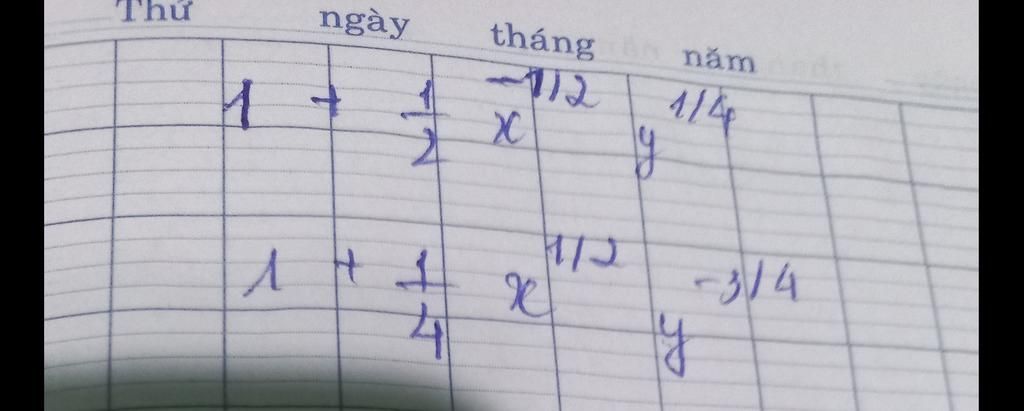 Thứ ngày tháng năm
1 + 1/2 x^-1/2 y^1/4
1 + 1/4 x^1/2 y^-3/4